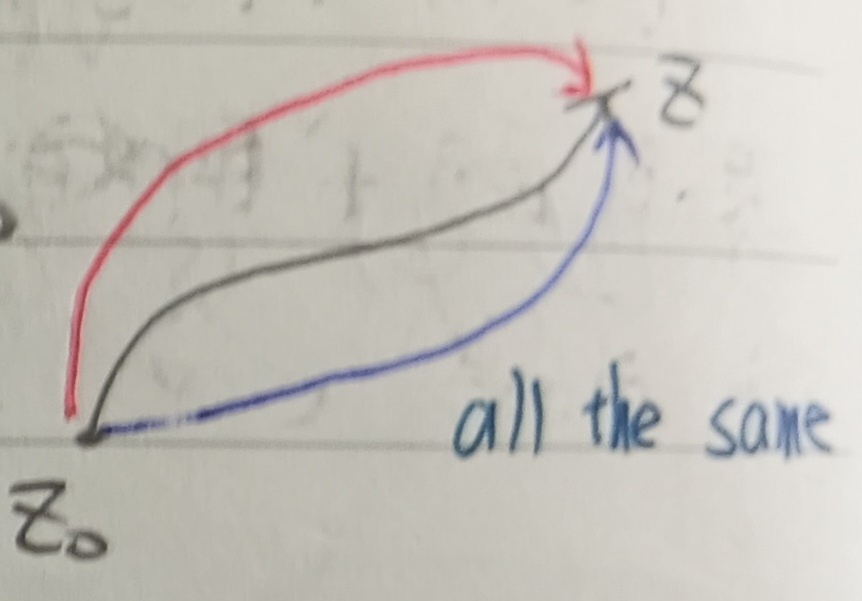 z
all the same
z₀